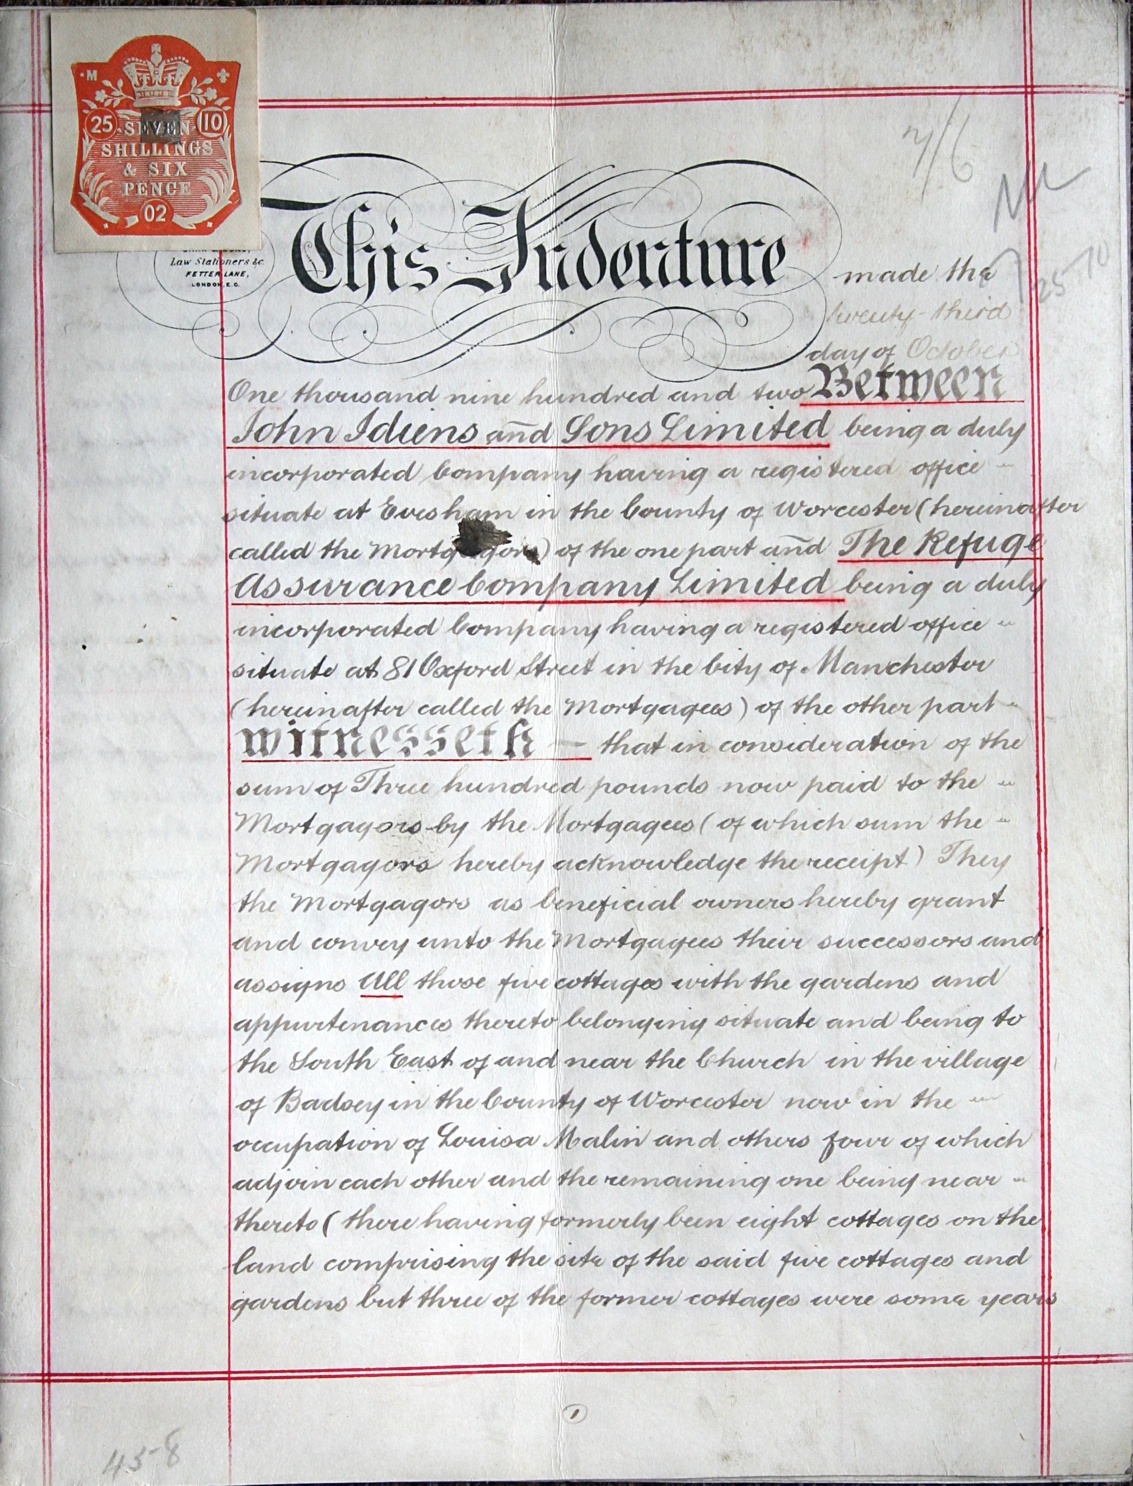 M
25 SEVEN 10
SHILLINGS
& SIX
PENCE
02
Law Stationers &c.
FETTER LANE,
LONDON, E.C.
7/6
25-10
This Indenture made the
twenty-third
day of October
One thousand nine hundred and two Between
John Idiens and Sons Limited being a duly
incorporated Company having a registered office
situate at Evesham in the County of Worcester (hereinafter
called the Mortgagors) of the one part and The Refuge
Assurance Company Limited being a duly
incorporated Company having a registered office
situate at 81 Oxford Street in the City of Manchester
(hereinafter called the Mortgagees) of the other part
Witnesseth — that in consideration of the
sum of Three hundred pounds now paid to the
Mortgagors by the Mortgagees (of which sum the
Mortgagors hereby acknowledge the receipt) They
the Mortgagors as beneficial owners hereby grant
and convey unto the Mortgagees their successors and
assigns All those five cottages with the gardens and
appurtenances thereto belonging situate and being to
the South East of and near the Church in the village
of Badsey in the County of Worcester now in the
occupation of Louisa Malin and others four of which
adjoin each other and the remaining one being near
thereto (there having formerly been eight cottages on the
land comprising the site of the said five cottages and
gardens but three of the former cottages were some years
1
45-8